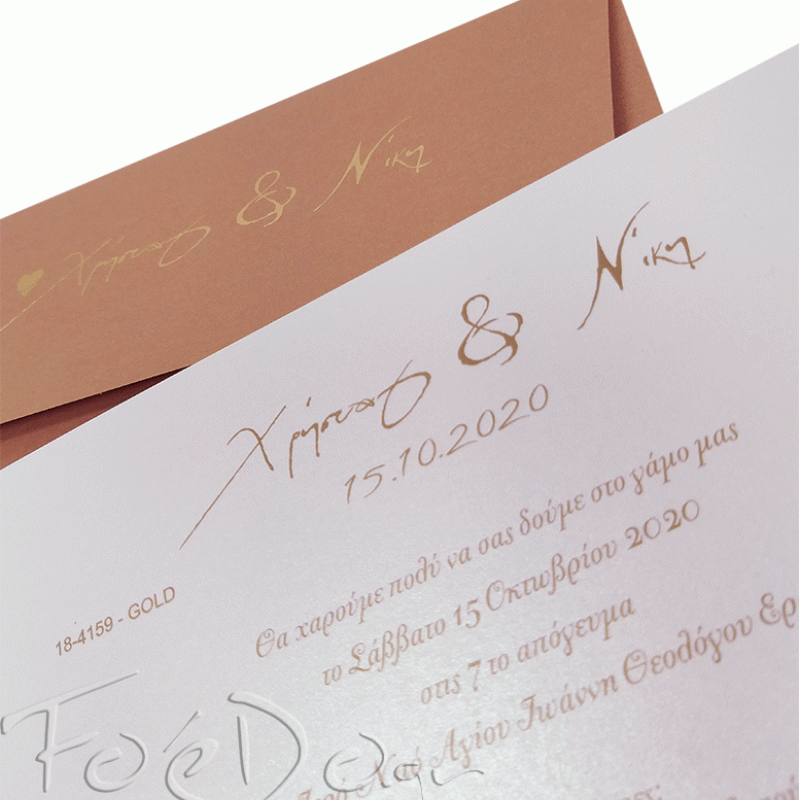 Χρήστος & Νίκη
Χρήστος & Νίκη
15.10.2020
Θα χαρούμε πολύ να σας δούμε στο γάμο μας
το Σάββατο 15 Οκτωβρίου 2020
στις 7 το απόγευμα
Ναό Αγίου Ιωάννη Θεολόγου Ερ
18-4159 - GOLD